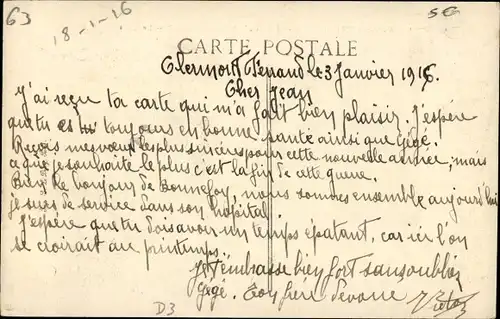 63
18-1-16
56
CARTE POSTALE
Clermont Ferrand le 3 Janvier 1916.
Cher Jean
J'ai reçu ta carte qui m'a fait bien plaisir. J'espère
que tu es toujours en bonne santé ainsi que Gégé.
Reçois mes vœux les plus sincères pour cette nouvelle année, mais
ce que je souhaite le plus c'est la fin de cette guerre.
Bien le bonjour de Bonnefoy, nous sommes ensemble aujourd'hui
je suis de service dans son hopital.
J'espère que tu dois avoir un temps épatant, car ici l'on
se croirait au printemps.
Je t'embrasse bien fort sans oublier
Gégé. Ton frère dévoué
D3